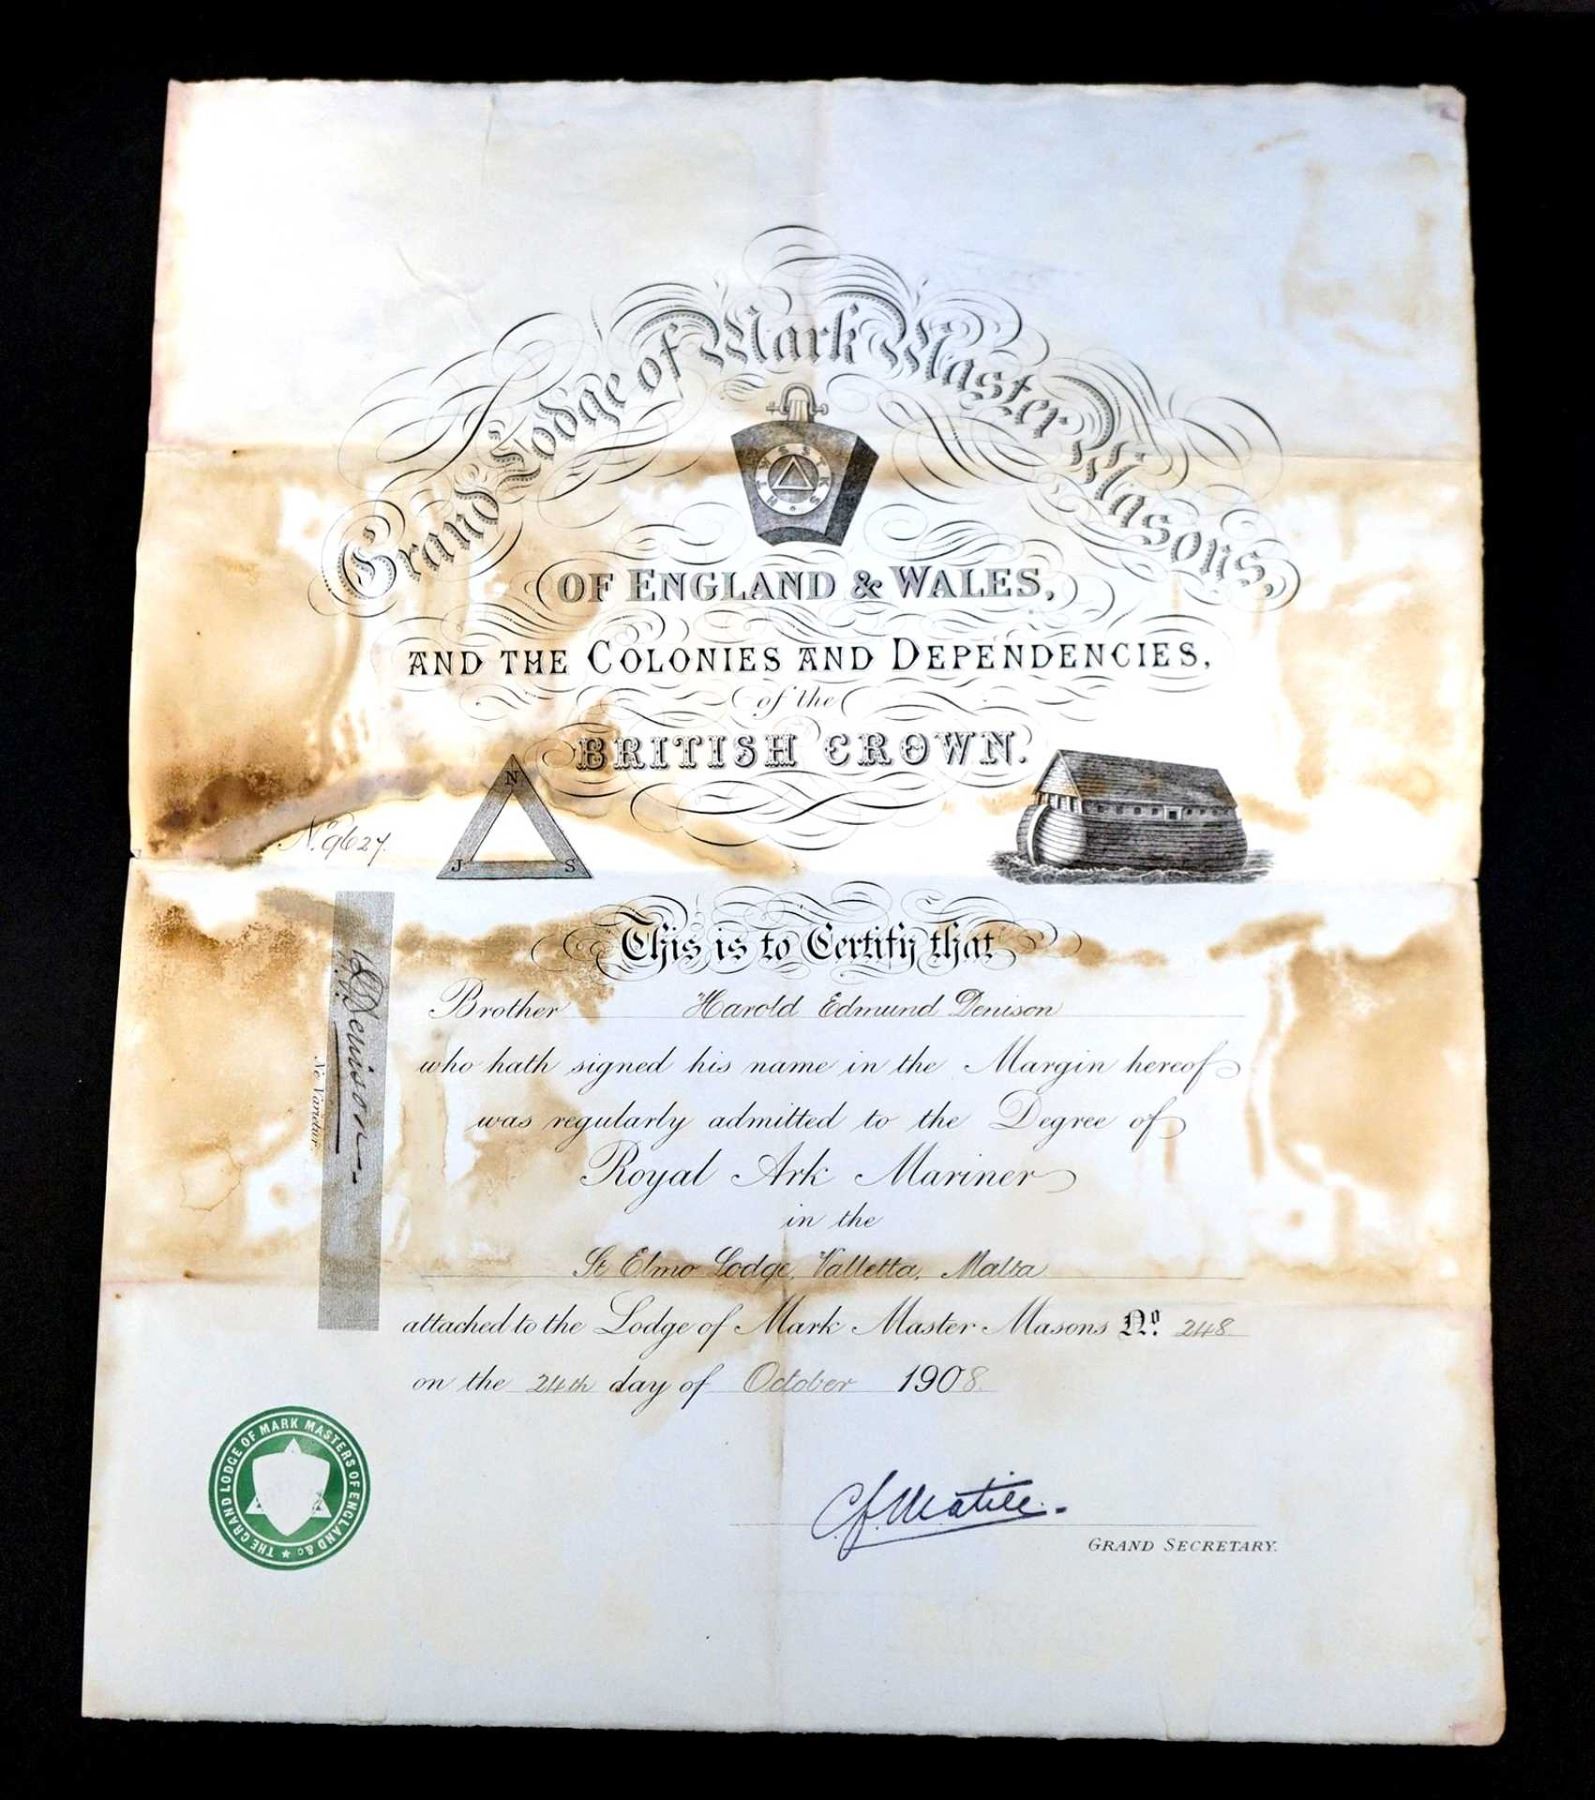 Grand Lodge of Mark Master Masons,
H T W S S T K S
OF ENGLAND & WALES,
AND THE COLONIES AND DEPENDENCIES,
of the
BRITISH CROWN.
N
J S
No. 9627.
This is to Certify that
Brother Harold Edmund Denison
who hath signed his name in the Margin hereof
was regularly admitted to the Degree of
Royal Ark Mariner
in the
St Elmo Lodge, Valletta, Malta
attached to the Lodge of Mark Master Masons No. 248
on the 24th day of October 1908.
Denison
Ne Varietur
THE GRAND LODGE OF MARK MASTERS OF ENGLAND &c
C. F. Matier.
GRAND SECRETARY.